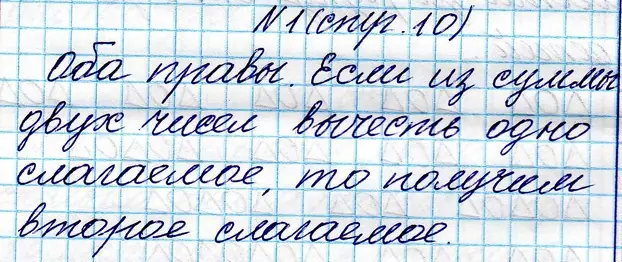 №1(стр.10)
Оба правы. Если из суммы
двух чисел вычесть одно
слагаемое, то получим
второе слагаемое.